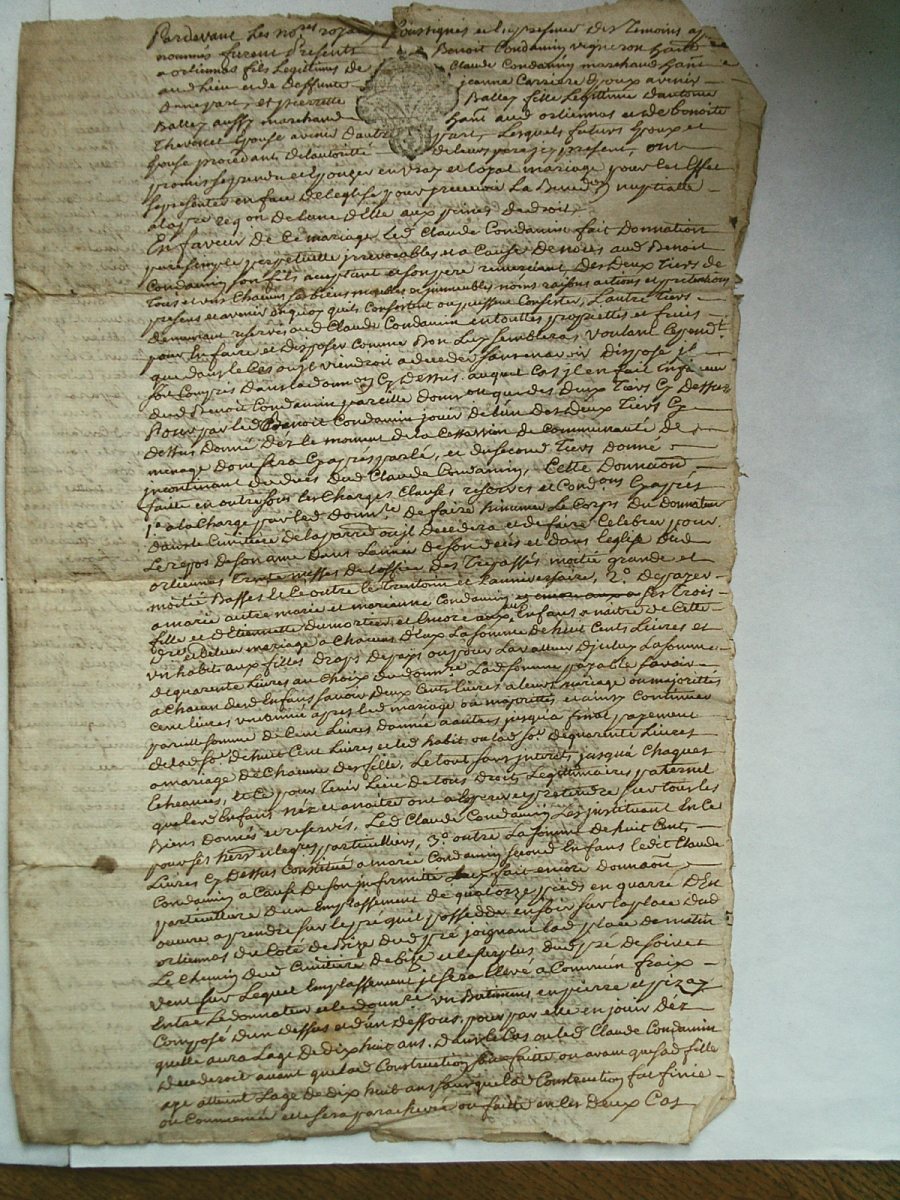 Pardevant Les no.res royaux soussignes et en presence des Temoins ap
nommés furent Presents Benoit Condamin vigneron habt
a orliennas fils Legitime de Claude Condamin marchand habt
aud Lieu et de deffunte jeanne Carriere Epoux avenir
dune part, et pierrette Balley fille Legitime dantoine
Balley aussy marchand habt aud orliennas et de benoite
Thevenet Epouse avenir dautre part, Lesquels futurs Epoux et
Epouse procedants de lautorité de leurs peres cy presents, ont
promis se prendre et Epouzer en vray et loyal mariage pour Cet Effet
se presenter en face de leglise pour y recevoir La Bened.on nuptialle
a la p.re req.on de lune delles aux peines de droit,
En faveur de Ce mariage Led Claude Condamin fait Donnation
pure simple perpetuelle irrevocables et a Cause de noces aud Benoit
Condamin son fils acceptant et son pere remerciant Des Deux Tiers de
Tous et uns Chacuns ses biens meubles et immeubles noms raisons actions et pretentions
presens et avenir En quoy quils Consistent ou puissent Consister, Lautre tiers
demeurant reservé aud Claude Condamin en touttes proprietés et fruits
pour En faire et disposer Comme Bon Luy semblera, voulant Cepend.t
que dans le Cas ou jl viendroit a deceder sans en avoir Disposé jl
soit Compris dans la donn.on Cy Dessus, auquel Cas jl en fait En faveur
dud Benoit Condamin pareille donn.on que des Deux Tiers Cy Dessus
Pour par led Benoit Condamin jouir de lun des Deux Tiers Cy
Dessus Donné Dez le moment de la Cessation de Communauté de
menage dont sera Cy apres parlé, et du second Tiers donné
incontinant le deces dud Claude Condamin, Cette Donnaon
faitte en outre sous les Charges Clauses reserves et Cond.ons Cy apres
1.° a la Charge par led donn.re de faire inhumer Le Corps du Donnateur
dans le Cimitiere de la parr.e ou jl Decedera et de faire Celebrer pour
Le repos de son ame dans Lannée de son deces et dans leglise dud
orliennas Trente messes de loffice des Trepassés moitié grande et
moitié Basses et Ce outre le Trentain et Lanniversaire, 2.° De payer
a marie autre marie et marianne Condamin ses trois
fille et d'Etiennette Dumortier et Encore aux Enfans a naitre de Cette
d.re et de leur mariage a Chacun Deux La somme de huit Cents Livres et
un habit aux filles draps de pays ou pour La valleur djceluy La somme
de quarente Livres au Choix du donn.re Lad somme payable savoir
a Chacun desd Enfans savoir Deux Cents livres a leur mariage ou majorités
Cent livres une année apres led mariage ou majorités et ainsy Continuer
pareille somme de Cent Livres dannée a autres jusqua final payement
de lad so.e de huit Cent Livres et led habit ou lad so.e de quarente Livres
a mariage de Chacune des fille, Le tout sans interets jusqua Chaques
Echeances, et Ce pour Tenir Lieu de tous droits Legitimaires paternel
que lesd Enfans néz et a naitre ont a Esperer et pretendre sur tous les
Biens donnés et reservés, Led Claude Condamin Les jnstituant En Ce
pour ses heres et legres particulliers, 3.° outre La somme de huit Cents
Livres Cy Dessus Constitué a marie Condamin second Enfans ledit Claude
Condamin a Cause de son infirmité Luy fait encore donnaon
particulliere d'un Emplassement de quatorze pieds en quarré d'En
oeuvre a prendre sur le pré quil possedde en soir sur la place dud
orliennas du Coté de Bize dud pré joignant lad place de matin
Le chemin dud Cimitiere de bize et le surplus dud pré de soir et
vent sur Lequel Emplassement jl sera Elevé a Commun fraix
Entre Le donnateur et le donn.re un Batimens en pierre et pizay
Composé d'un dessus et d'un dessous, pour par elle en jouir dez
quelle aura Lage de dix huit ans. Dans le Cas ou led Claude Condamin
Decederoit avant que lad Construction fut faitte ou avant que sad fille
aye atteint Lage de dix huit ans sans que lad Construction fut finie
ou Commencée elle sera parachevée ou faitte en les Deux Cas